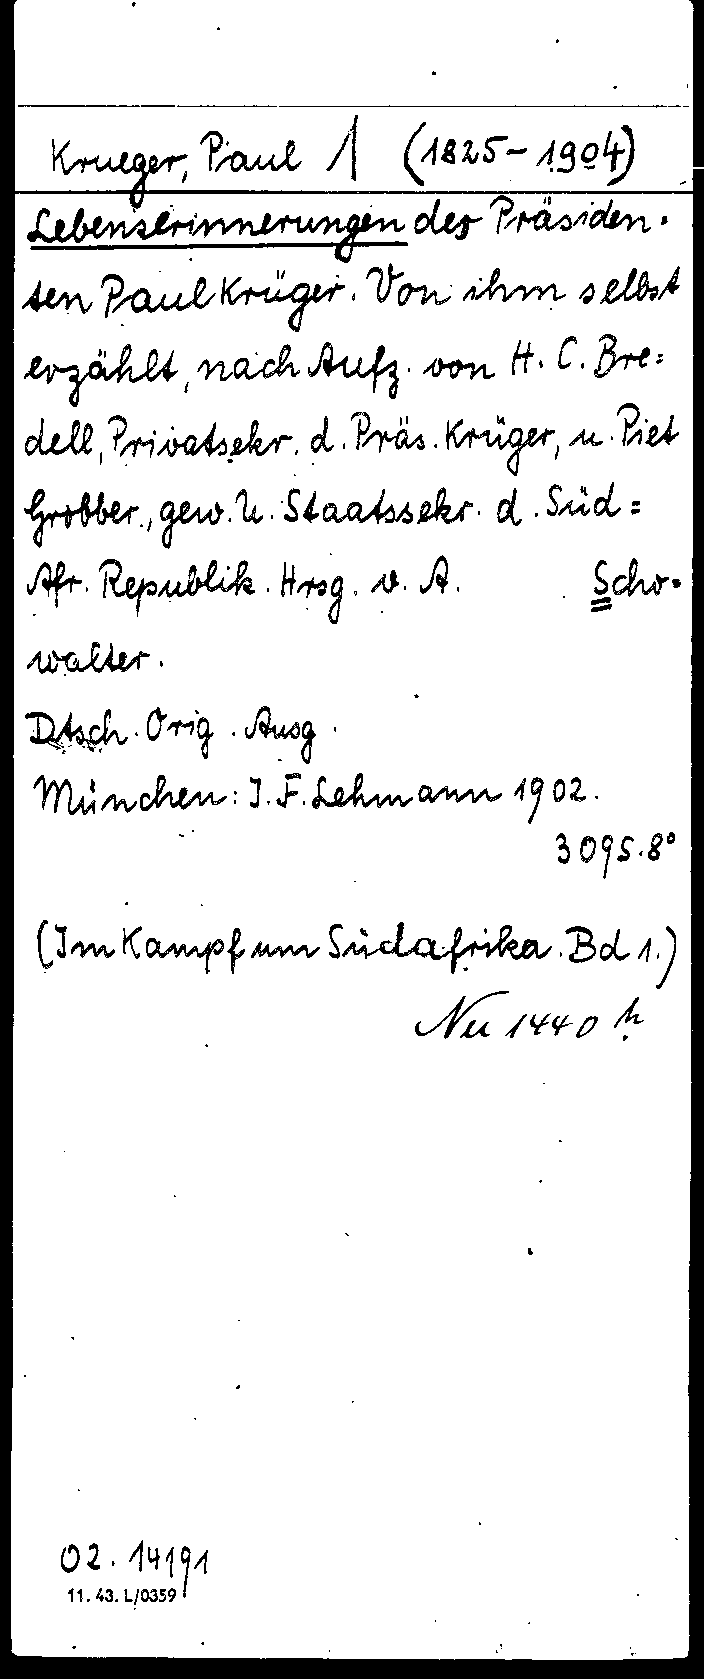 Krueger, Paul 1 (1825-1904)
Lebenserinnerungen des Präsiden-
ten Paul Krüger. Von ihm selbst
erzählt, nach Aufz. von H. C. Bre=
dell, Privatsekr. d. Präs. Krüger, u. Piet
Grobber., gew. U. Staatssekr. d. Süd=
Afr. Republik. Hrsg. v. A. Scho=
walter.
Dtsch. Orig. Ausg.
München: J. F. Lehmann 1902.
309 S. 8°
(Im Kampf um Südafrika. Bd 1.)
Nu 1440 h
02. 14191
11. 43. L/0359